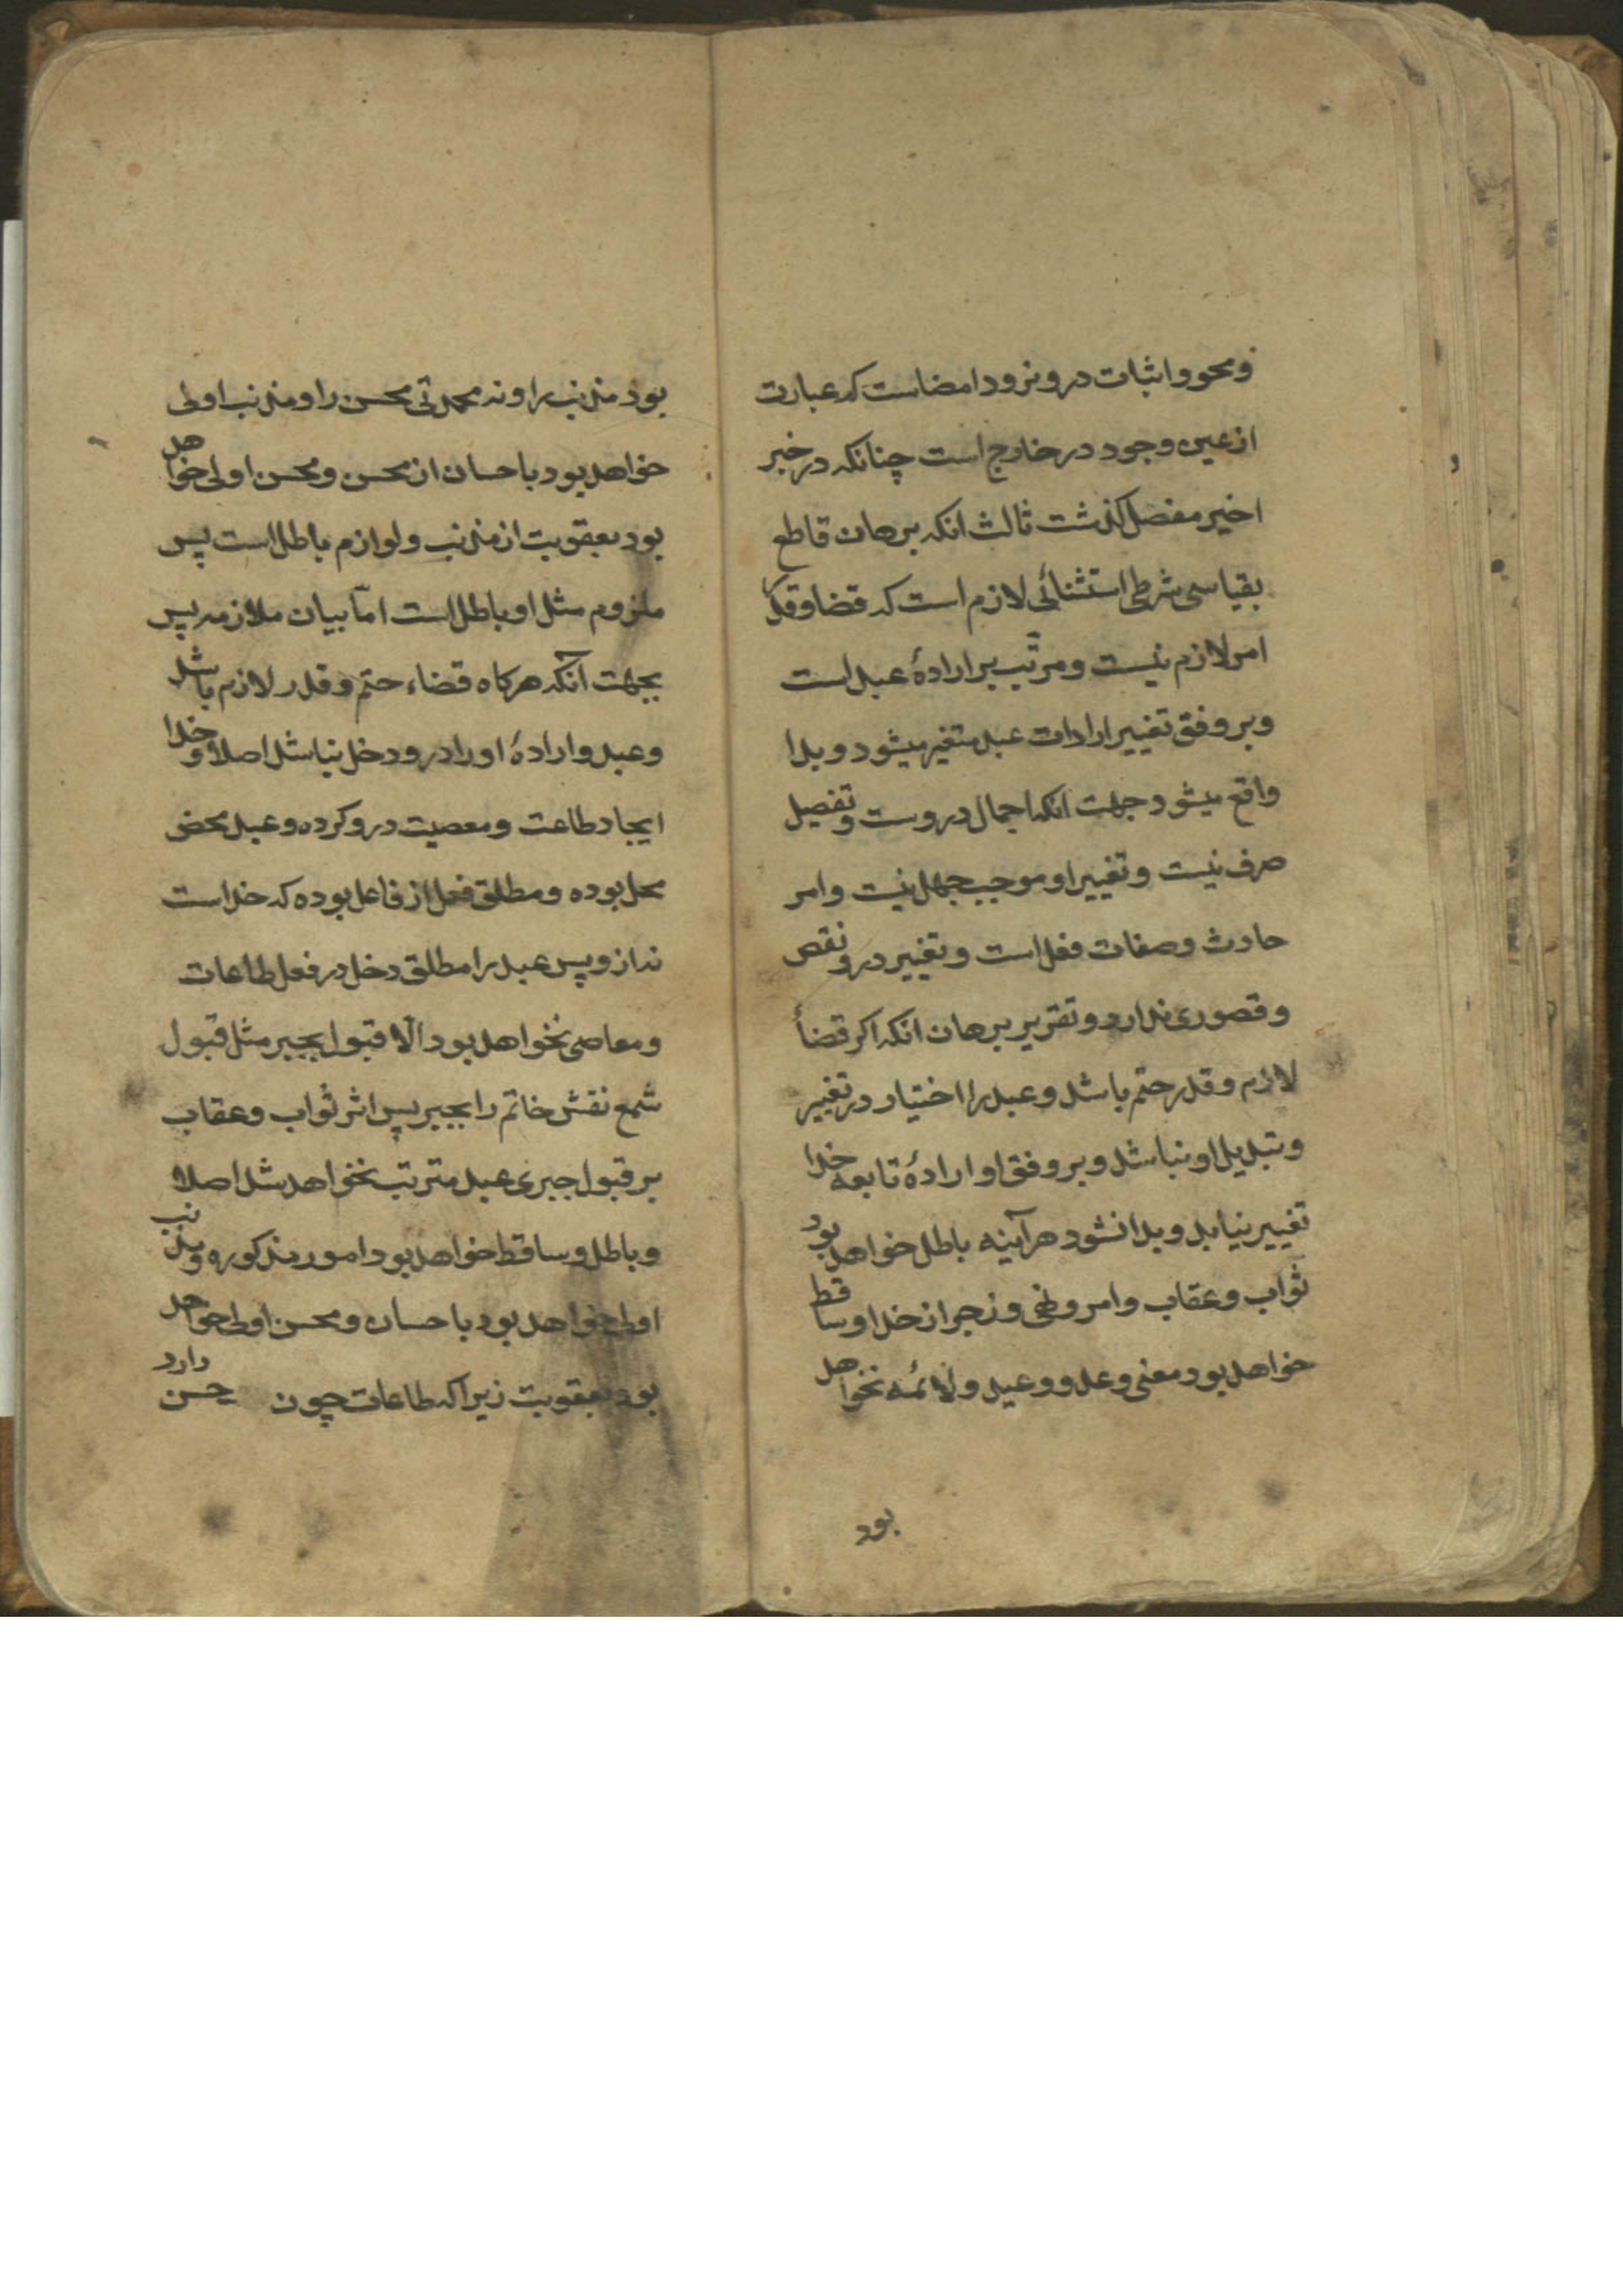 و محو و اثبات درو نرود امضاست که عبارت
از عین وجود در خارج است چنانکه در خبر
اخیر مفصل گذشت ثالث انکه برهان قاطع
بقیاسی شرطی استثنائی لازم است که قضا و قدر
امر لازم نیست و مرتّب بر ارادهٔ عبد است
و بر وفق تغییر ارادات عبد متغیر میشود و بدا
واقع میشود جهت انکه اجمال دروست و تفصیل
صرف نیست و تغییر او موجب جهل نیست و امر
حادث و صفات فعل است و تغییر درو نقص
و قصوری ندارد و تقریر برهان انکه اکر قضأ
لازم و قدر حتم باشد و عبد را اختیار در تغییر
و تبدیل او نباشد و بر وفق او ارادهٔ تابعه خدا
تغییر نیابد و بدا نشود هرآینه باطل خواهد بود
ثواب و عقاب و امر و نهی و زجر از خدا و ساقط
خواهد بود معنی وعد و وعید و لائمه نخواهد
بود
بود مذنب را و نه محمدتی محسن را و مذنب اولی
خواهد بود باحسان از محسن و محسن اولی خواهد
بود بعقوبت از مذنب و لوازم باطل است پس
ملزوم مثل او باطل است امّا بیان ملازمه پس
بجهت آنکه هرکاه قضاء حتم و قدر لازم باشد
و عبد و ارادهٔ او را درو دخل نباشد اصلا و خدا
ایجاد طاعت و معصیت درو کرده و عبد محض
محل بوده و مطلق فعل از فاعل بوده که خداست
نه ازو پس عبد را مطلق دخل در فعل طاعات
و معاصی نخواهد بود الّا قبول بجبر مثل قبول
شمع نقش خاتم را بجبر پس اثر ثواب و عقاب
بر قبول جبری عبد مترتب نخواهد شد اصلا
و باطل و ساقط خواهد بود امور مذکوره و مذنب
اولی خواهد بود باحسان و محسن اولی خواهد
بود بعقوبت زیرا که طاعات چون حسن دارد